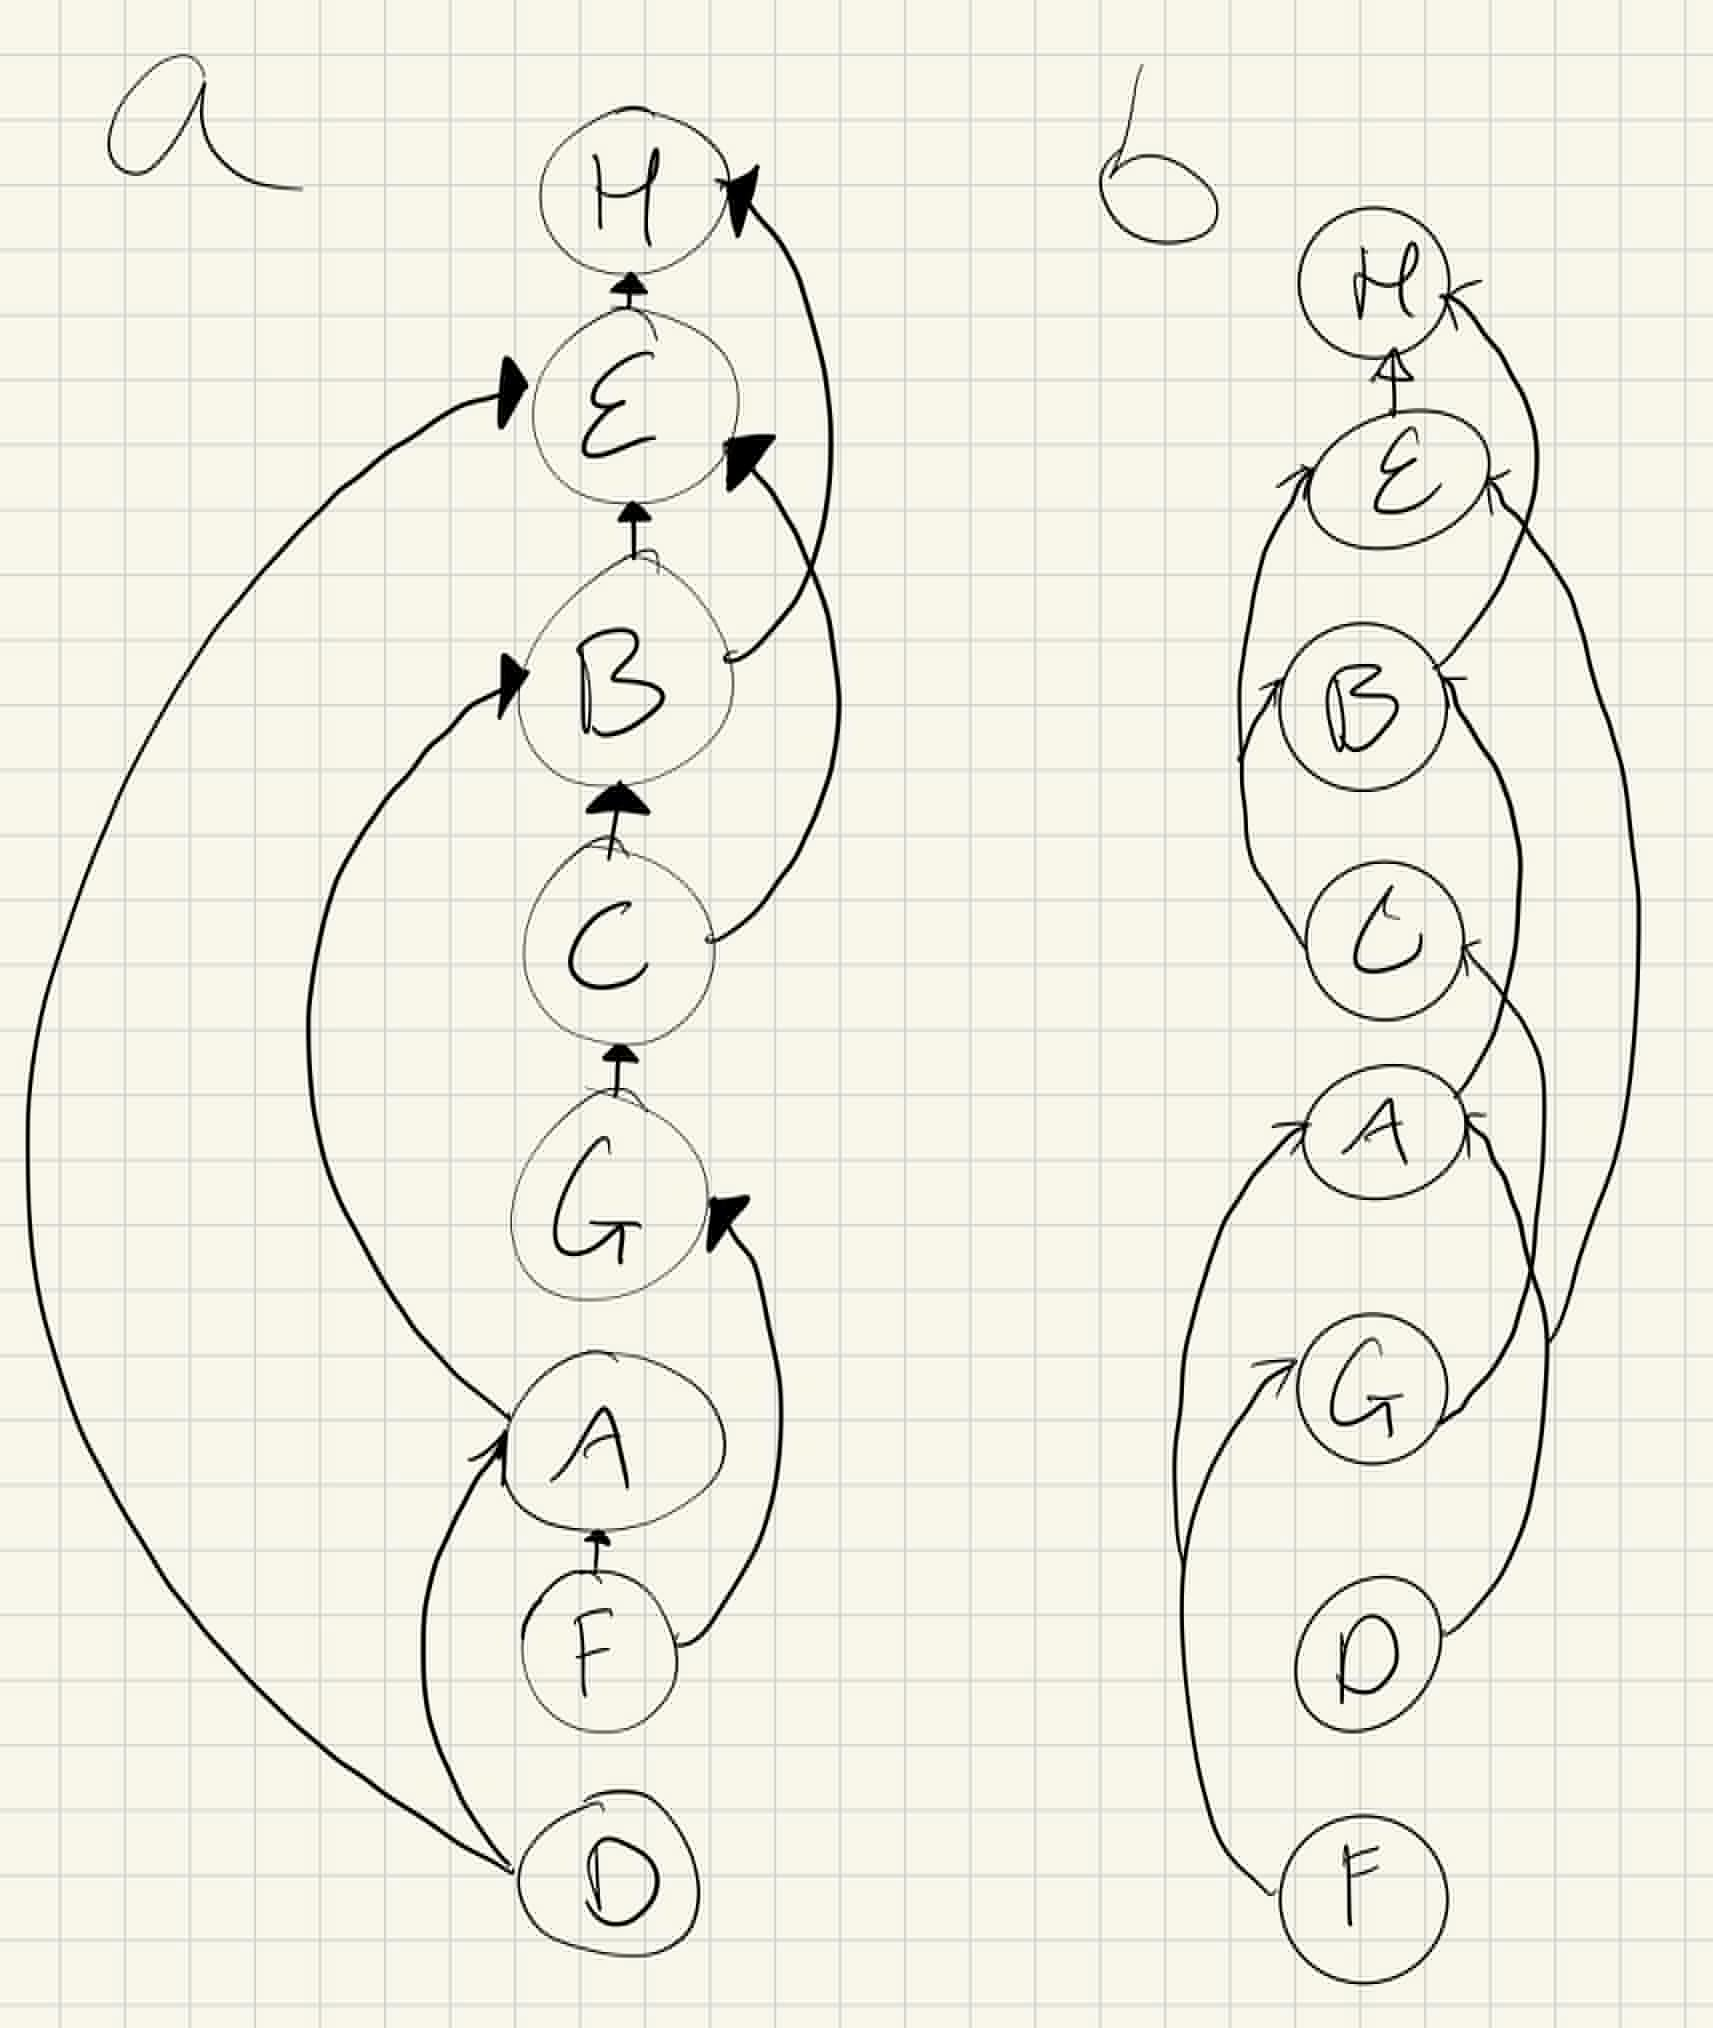 a
b
H
E
B
C
G
A
F
D
H
E
B
C
A
G
D
F